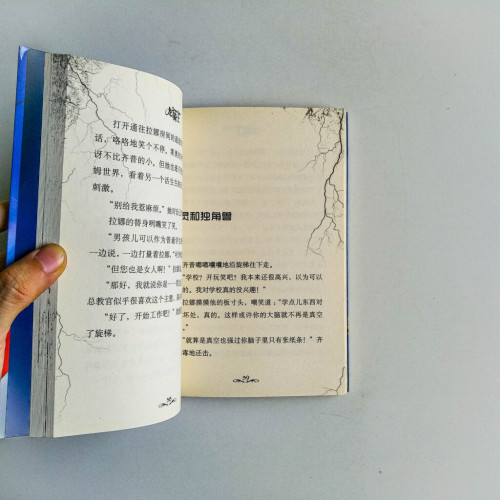 打开通往拉娜房间的
话，咯咯地笑个不停。
讶不比齐普的小。但她
姆世界，看着另一个活生生
刺激。
“别给我惹麻烦。”
拉娜的替身咧嘴笑了笑。
“男孩儿可以作为普通
一边说，一边打量着拉娜。
“但您也是女人啊！”
“那好，我就说你是
总教官似乎很喜欢这个主意，
“好了，开始工作吧！”
了旋梯。
灵和独角兽
齐普嘟嘟囔囔地沿旋梯往下走。
“学校？开玩笑吧？我本来还很高兴，以为可以
的。我对学校真的没兴趣！”
拉娜摸摸他的板寸头，嘲笑道：“学点儿东西对
坏处，真的。这样或许你的大脑就不再是真空
”
“就算是真空也强过你脑子里只有张纸条！”齐
毒地还击。